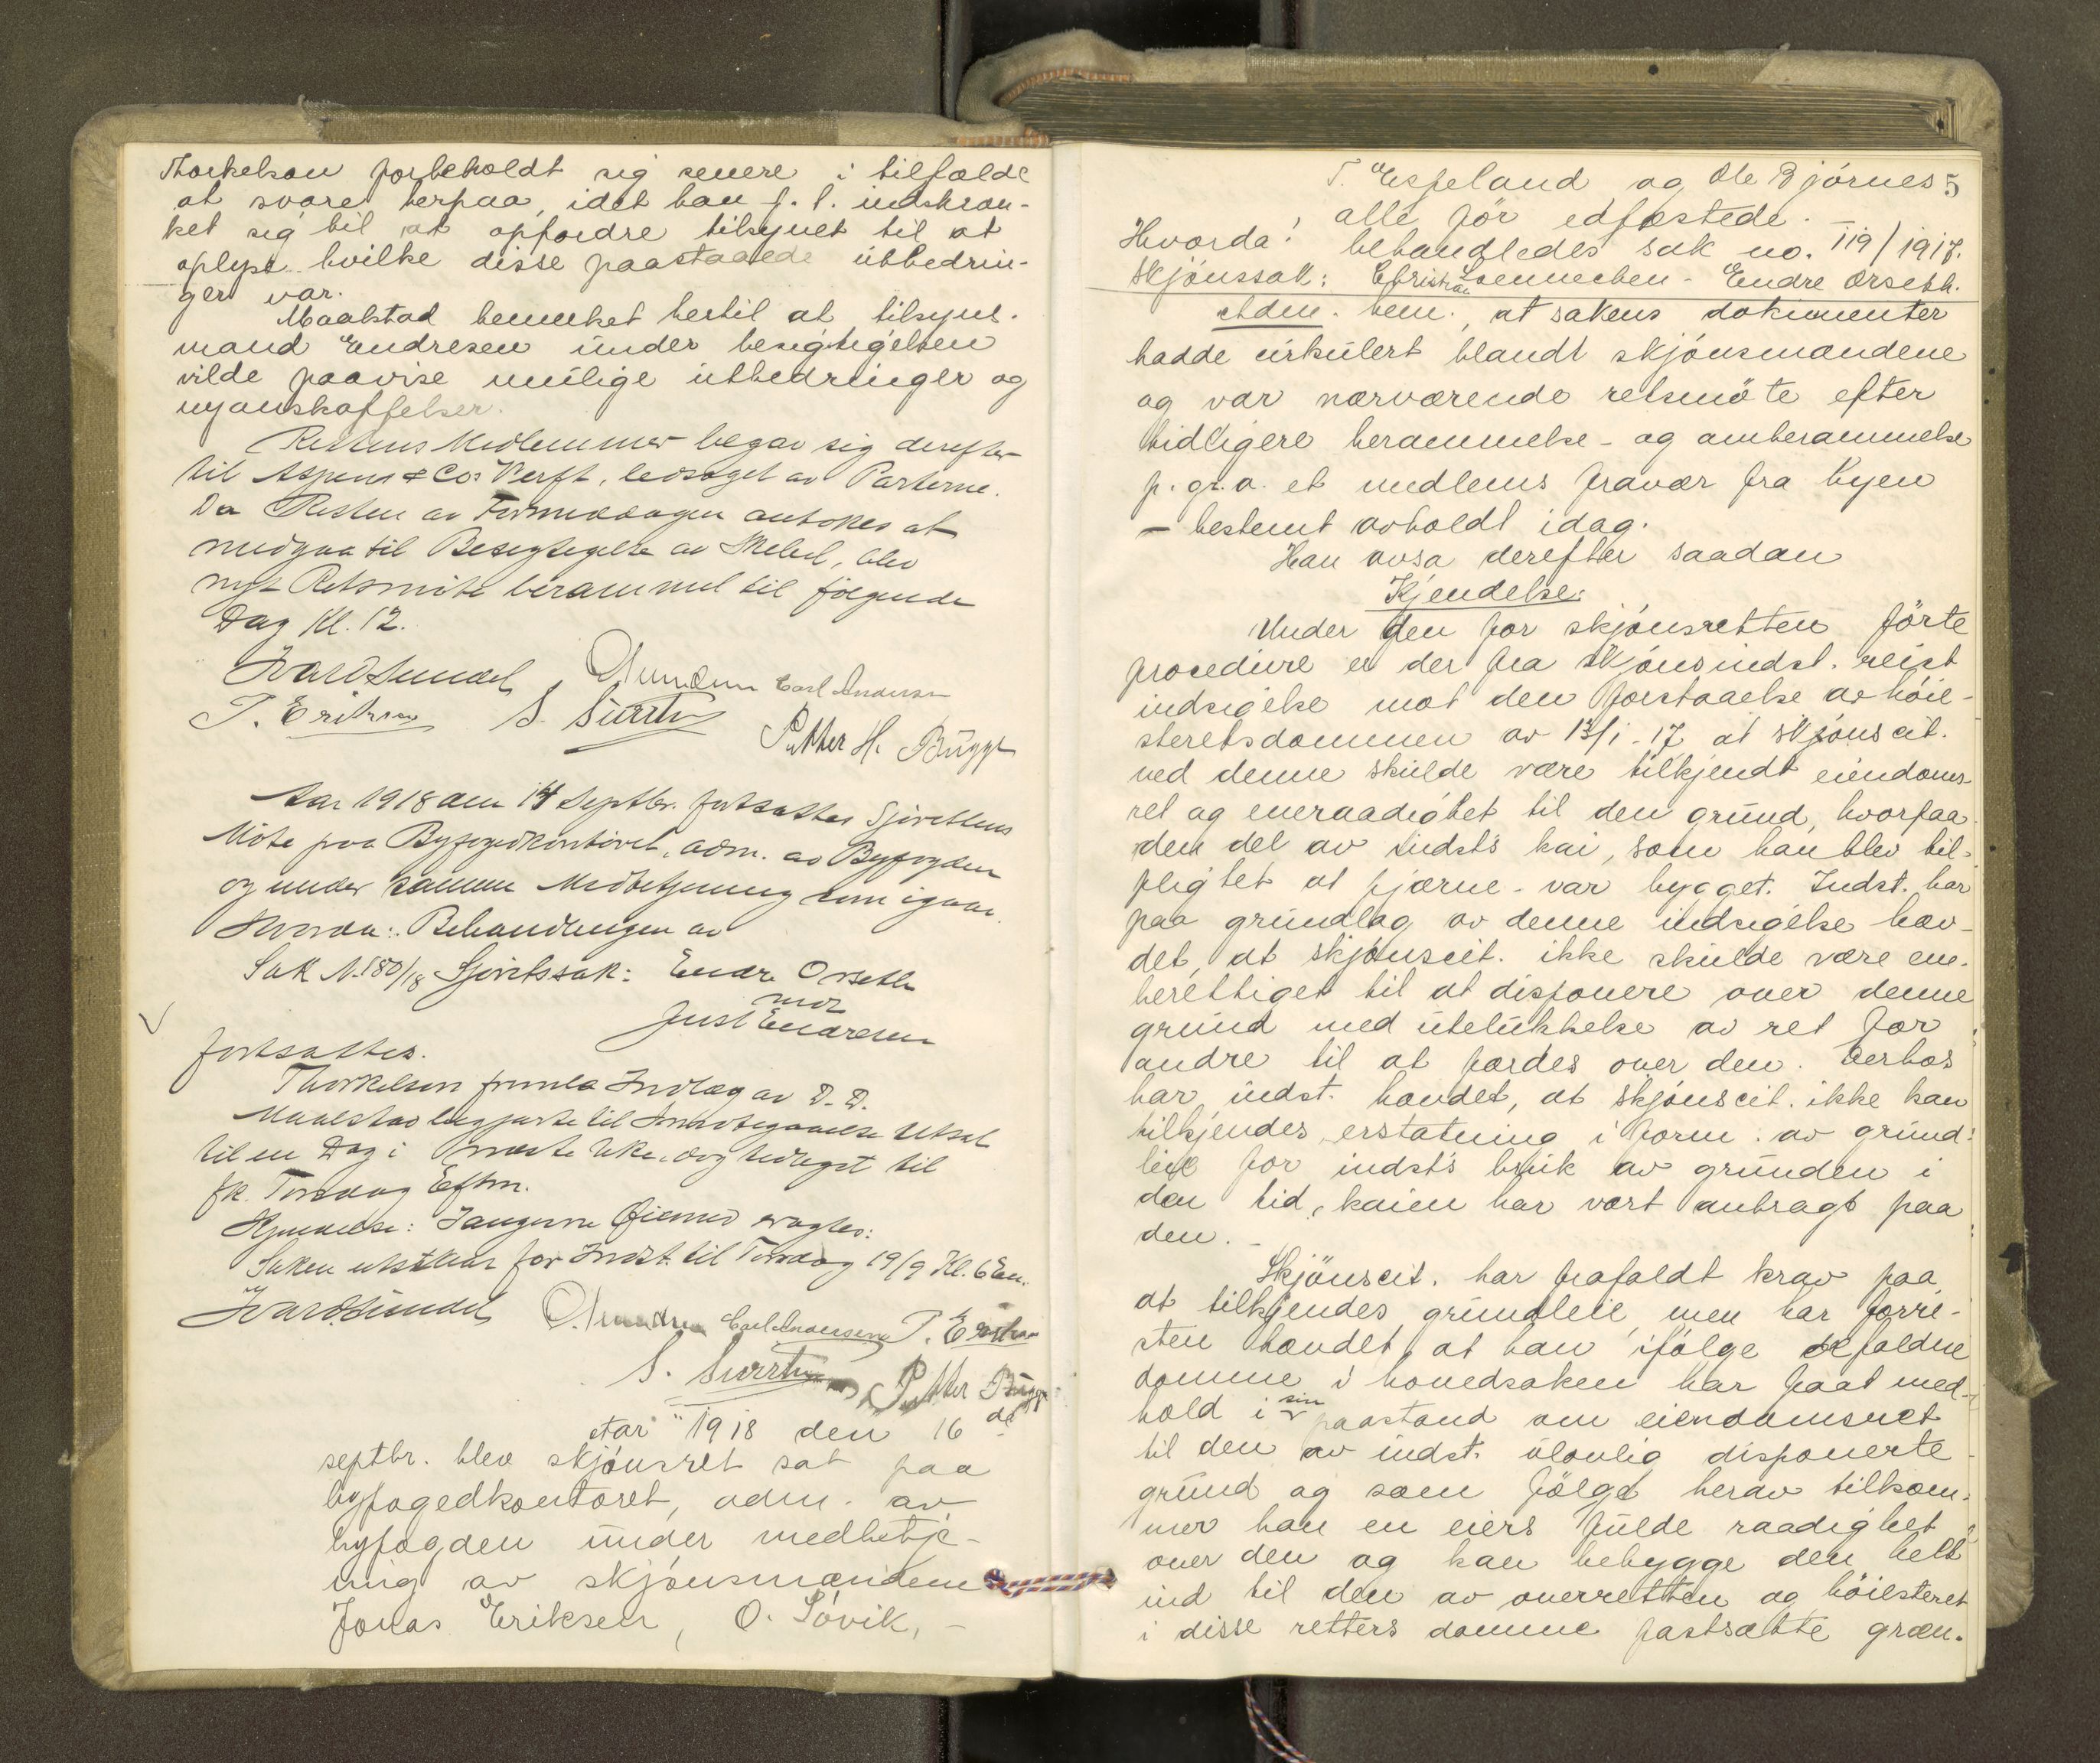 Thorkelson forbeholdt sig senere i tilfælde
at svare herpaa, idet han f. t. indskræn-
ket sig til at opfordre tilsynet til at
oplyse hvilke disse paastaaede utbedrin-
ger var.
Maalstad bemerket hertil at tilsyns-
mand Endresen under besigtigelsen
vilde paavise mulige utbedringer og
nyanskaffelser.
Rettens Medlemmer begav sig derefter
til Aspens & Cos Verft, ledsaget av Parterne.
Da Resten av Formiddagen antokes at
medgaa til Besigtigelse av Skibet, blev
nyt Retsmöte berammet til følgende
Dag Kl. 12.
Carl Andersen
T. Eriksen S.
Petter H. Bügge
Aar 1918 den 14 Septbr. fortsattes Sjørettens
Möte paa Byfogedkontoret, adm. av Byfogden
og under samme Medbetjening som igaar.
Hvorda: Behandlingen av
Sak N. 180/18 Sjøretssak: Endre Orseth
mot
Just Endresen
fortsattes.
Thorkelson fremla Indlæg av D. D.
Maalstad begjærte til Imøtegaaelse Utsæt
til en Dag i næste Uke, dog til
fk. Torsdag Eftm.
Kjendelse:
Saken utsættes for Indst. til Torsdag 19/9 Kl. 6 Em.
Carl Andersen T.
S. Petter Bügge
Aar 1918 den 16 de
septbr. blev skjønsret sat paa
byfogedkontoret, adm. av
byfogden under medbetje-
ning av skjønsmændene
Jonas Eriksen, O. Søvik, -
T. Espeland og Ole Bjørnes 5
alle før edfæstede. -
Hvorda: behandledes sak no. 119/1917.
Skjønssak: Christian Loennechen - Endre Orseth.
Adm. bem., at sakens dokumenter
hadde cirkulert blandt skjønsmændene
og var nærværende retsmöte efter
tidligere berammelse - og omberammelse
p. gr. a. et medlems fravær fra byen
- bestemt avholdt idag.
Han avsa derefter saadan
Kjendelse:
Under den for skjønsretten förte
procedüre er der fra skjønsindst. reist
indsigelse mot den forstaaelse av höie-
steretsdommen av 13/1-17 at skjønscit.
ved denne skulde være tilkjendt eiendoms-
ret og eneraadighet til den grund, hvorpaa
den del av indsts kai, som han blev til-
pligtet at fjærne - var bygget. Indst. har
paa grundlag av denne indsigelse hæv-
det, at skjønscit. ikke skulde være ene-
berettiget til at disponere over denne
grund med utelukkelse av ret for
andre til at færdes over den. Derhos
har indst. hævdet, at skjønscit. ikke kan
tilkjendes erstatning i form. av grund-
leie for indsts bruk av grunden i
den tid, kaien har vært anbragt paa
den. -
Skjønscit. har frafaldt krav paa
at tilkjendes grundleie, men har forre-
sten hævdet, at han ifølge de faldne
domme i hovedsaken har faat med-
hold i sin paastand om eiendomsret
til den av indst. ulovlig disponerte
grund og som følge herav tilkom-
mer han en eiers fulde raadighet
over den og kan bebygge den helt
ind til den av overretten og høiesteret
i disse retters domme fastsatte græn-